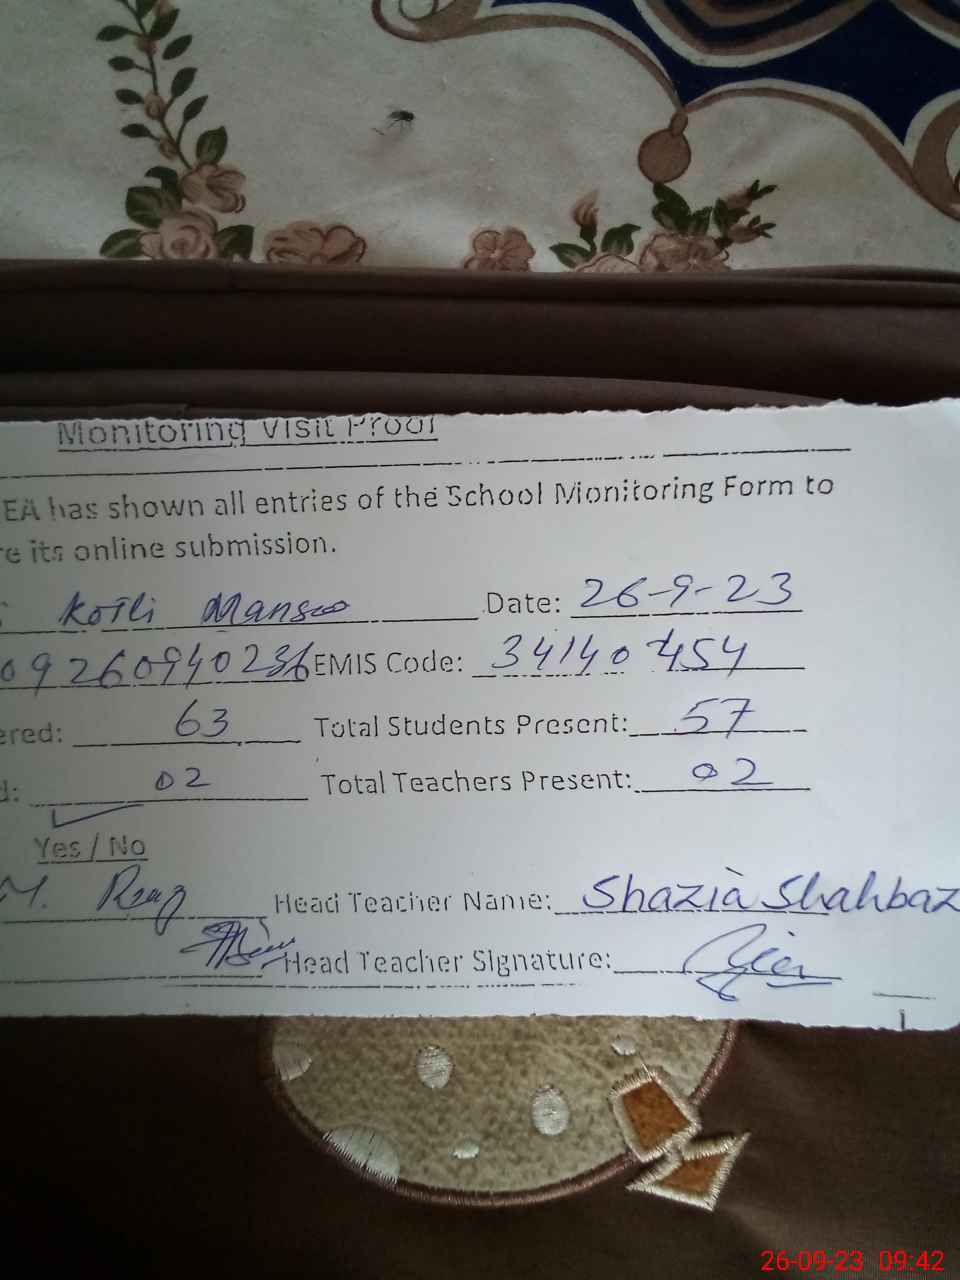 Monitoring Visit Proof
EA has shown all entries of the School Monitoring Form to
re its online submission.
Kotli Mansoo Date: 26-9-23
09260940236 EMIS Code: 34140454
ered: 63 Total Students Present: 57
d: 02 Total Teachers Present: 02
Yes / No
M. Reaz Head Teacher Name: Shazia Shahbaz
Head Teacher Signature:
26-09-23 09:42